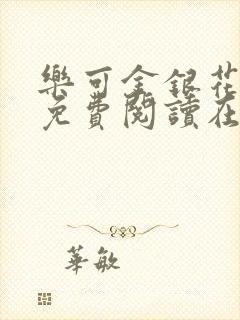 樂可金銀花
免費閱讀在
華敏